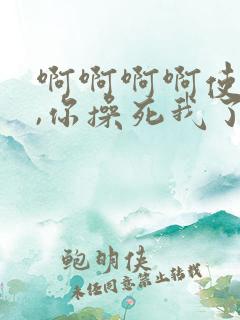 啊啊啊啊使
,你操死我了
鲍明侠
未经同意禁止转载